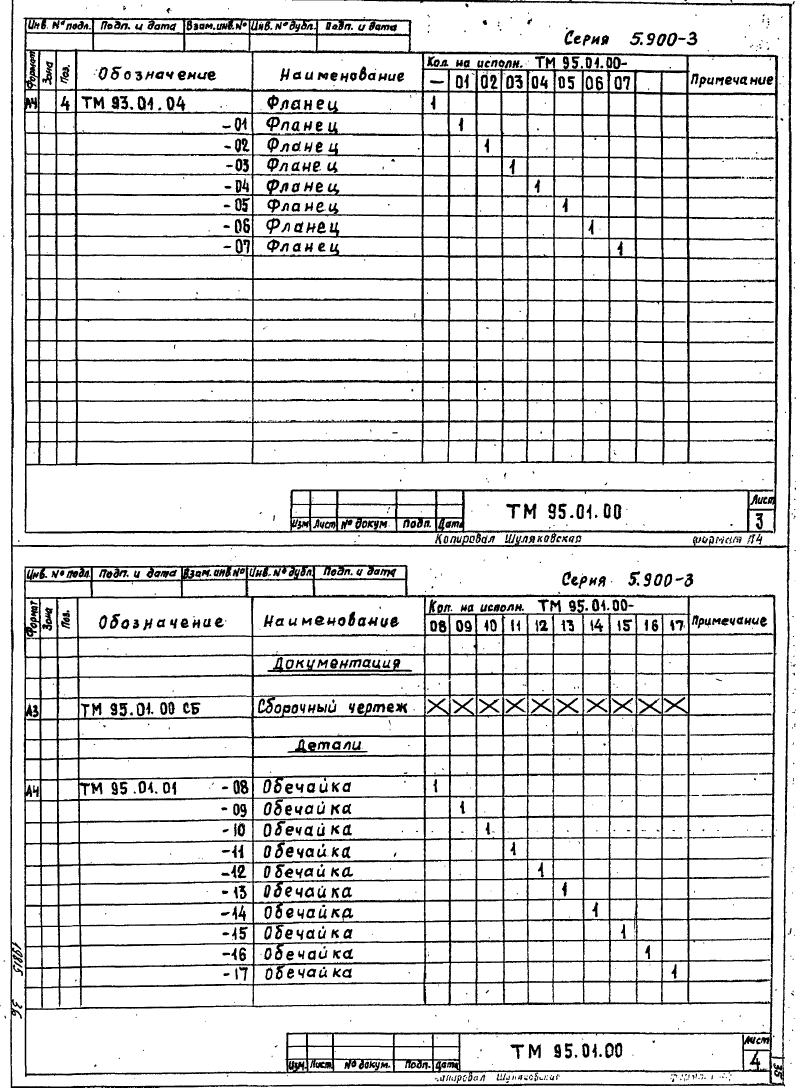 Инв. № подл. Подп. и дата Взам. инв. № Инв. № дубл. Подп. и дата
Серия 5.900-3
Формат Зона Поз. Обозначение Наименование Кол. на исполн. ТМ 95.01.00- Примечание
— 01 02 03 04 05 06 07
А4 4 ТМ 93.01.04 Фланец 1
-01 Фланец 1
-02 Фланец 1
-03 Фланец 1
-04 Фланец 1
-05 Фланец 1
-06 Фланец 1
-07 Фланец 1
ТМ 95.01.00
Лист
3
Изм Лист № докум. Подп. Дата
Копировал Шуляковская формат А4
Инв. № подл. Подп. и дата Взам. инв. № Инв. № дубл. Подп. и дата
Серия 5.900-3
Формат Зона Поз. Обозначение Наименование Кол. на исполн. ТМ 95.01.00- Примечание
08 09 10 11 12 13 14 15 16 17
Документация
А3 ТМ 95.01.00 СБ Сборочный чертеж X X X X X X X X X X
Детали
А4 ТМ 95.01.01 -08 Обечайка 1
-09 Обечайка 1
-10 Обечайка 1
-11 Обечайка 1
-12 Обечайка 1
-13 Обечайка 1
-14 Обечайка 1
-15 Обечайка 1
-16 Обечайка 1
-17 Обечайка 1
36
ТМ 95.01.00
Лист
4
Изм. Лист № докум. Подп. Дата
Копировал Шуляковская
35